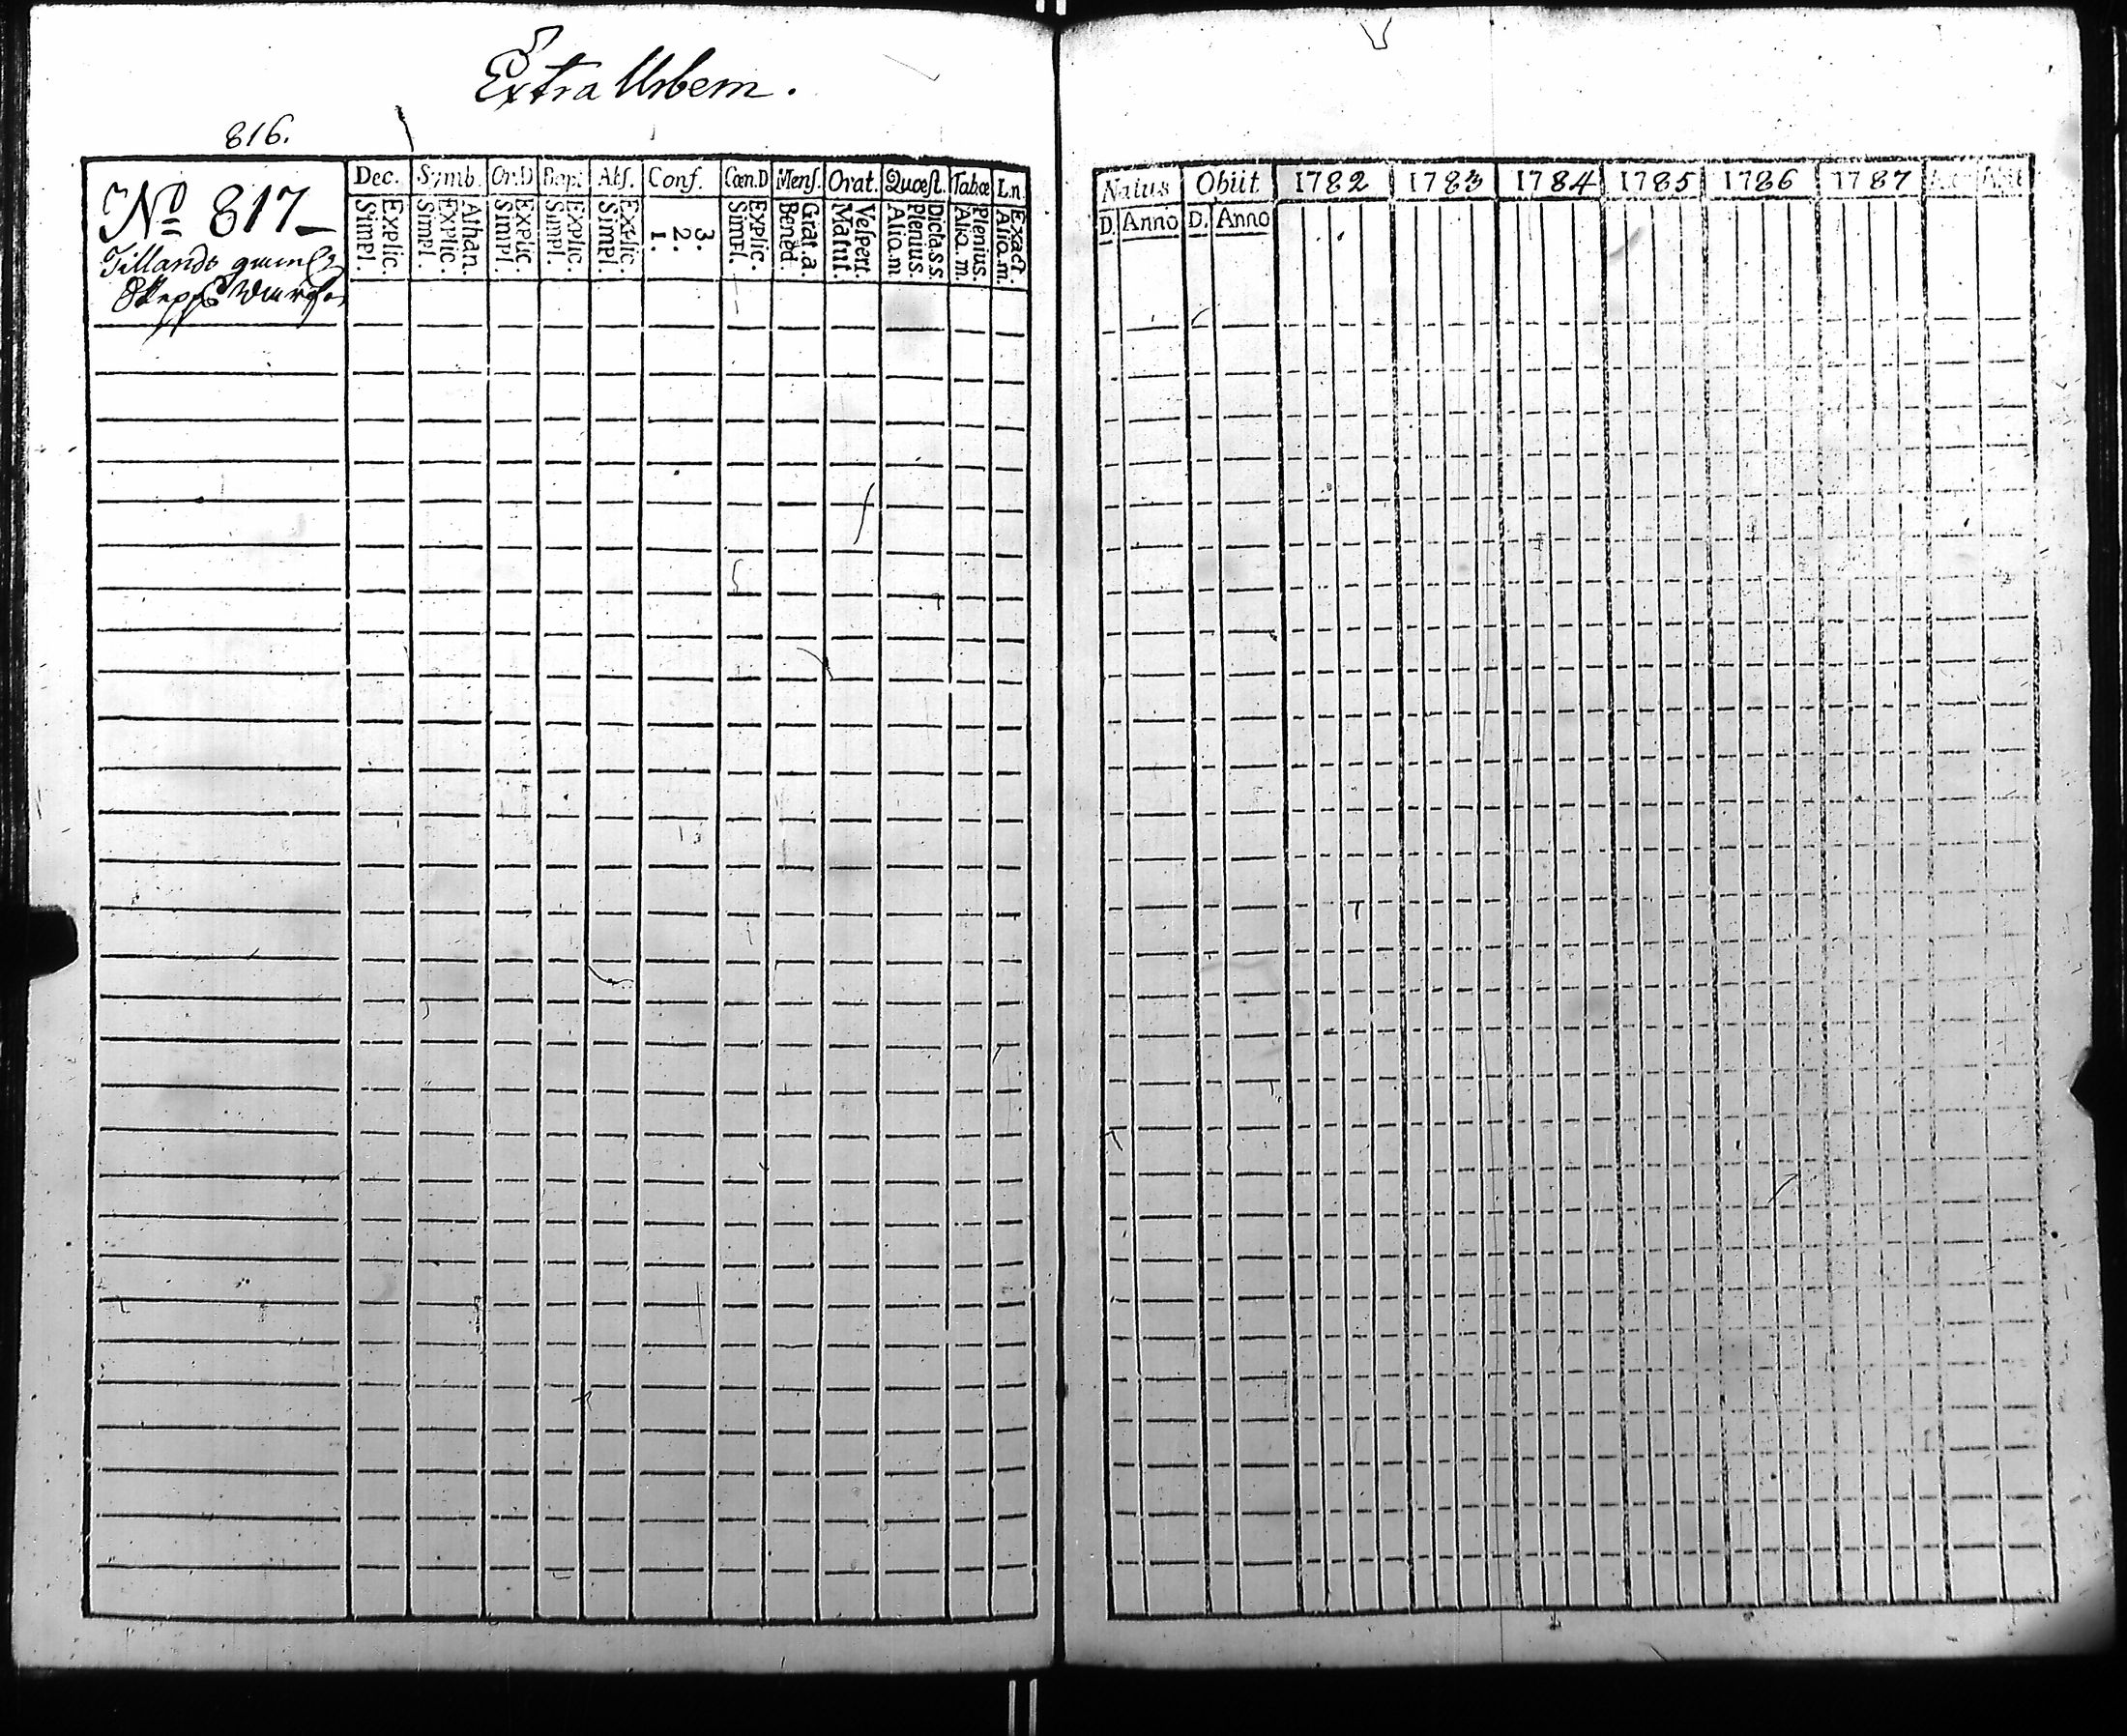 Extra Urbem.
816.
Nº 817
Tillands gamla
Skepps Warfvet
Dec. Symb. Or.D Bapt. Abs. Conf. Cœn.D Mens. Orat. Quæst. Tabæ L.n.
Explic. Simpl. Athan. Explic. Simpl. Explic. Simpl. Explic. Simpl. Explic. Simpl. 3. 2. 1. Explic. Simpl. Grat.a. Bened. Vespert. Matut. Dicta.s.s. Plenius. Alio.m. Plenius. Alio.m. Exact. Alio.m.
Natus Obiit 1782 1783 1784 1785 1786 1787
D. Anno D. Anno